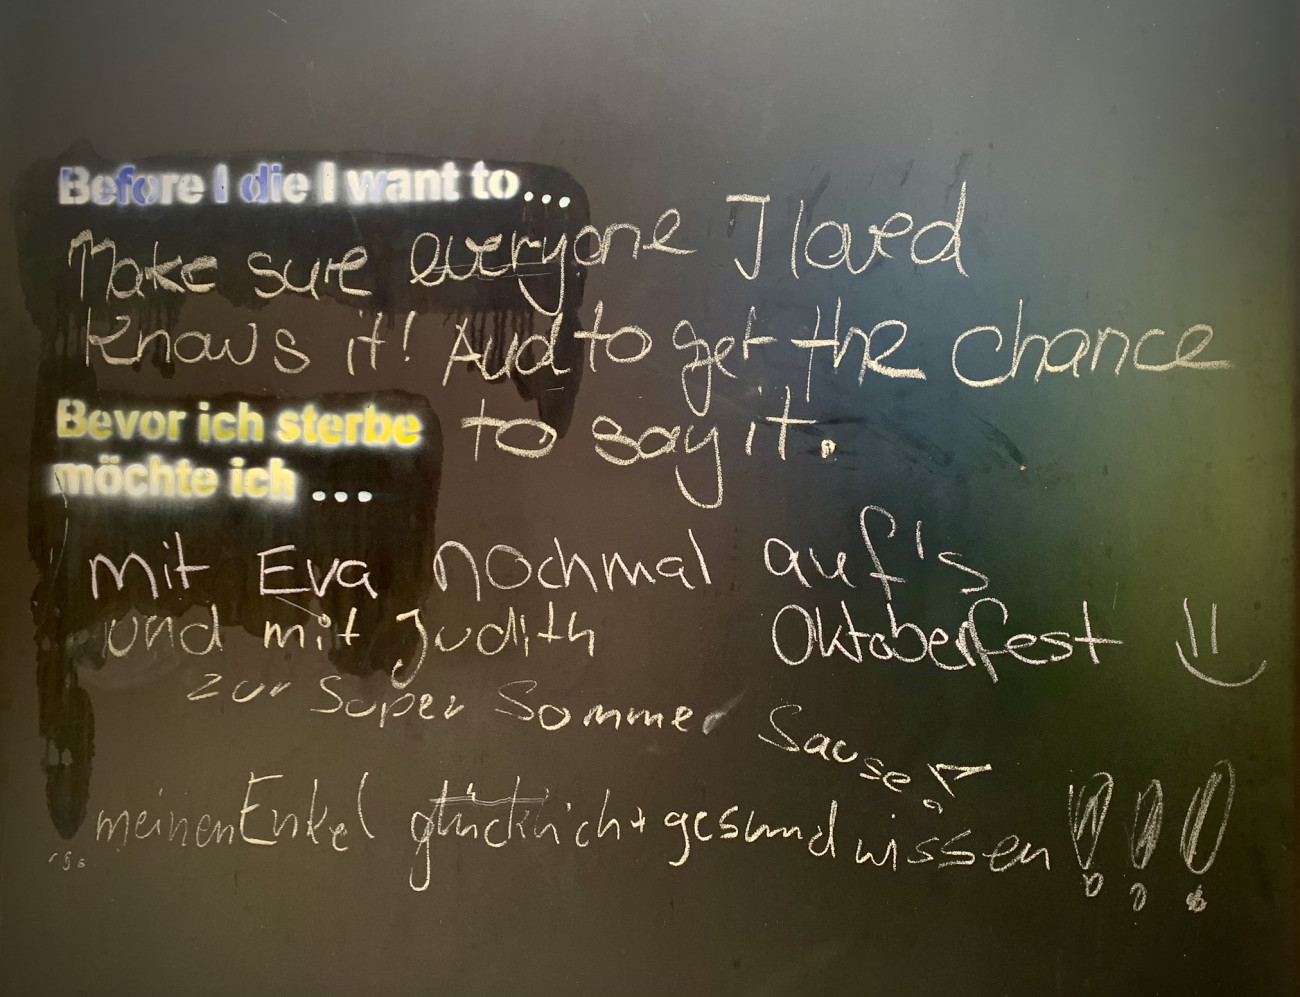 Before I die I want to...
Make sure everyone I loved
knows it! And to get the chance
to say it.
Bevor ich sterbe
möchte ich ...
mit Eva nochmal auf's
Oktoberfest
und mit Judith
zur Super Sommer Sause!
meinen Enkel glücklich + gesund wissen !!!